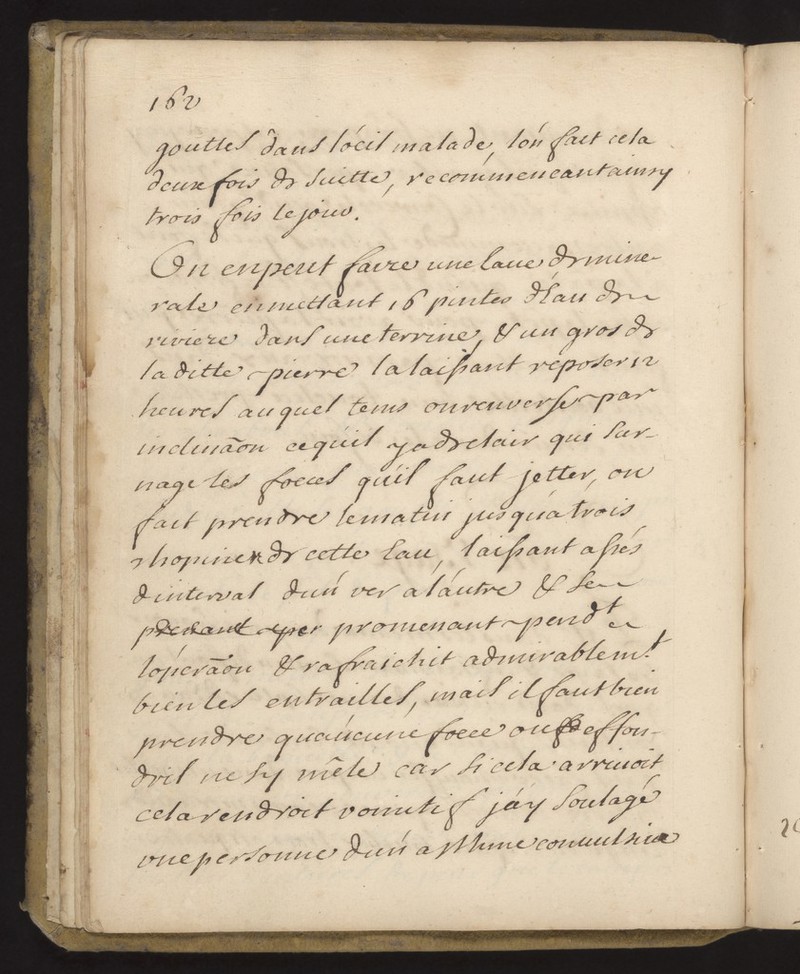 162
gouttes dans l'oëil malade, lon fait cela
deux fois de suitte, recommencant ainsy
trois fois le jour.
On en peut faire une l'aue de mine-
rale en mettant 16 pintes d'Eau de
riviere dans une terrine, & un gros de
la ditte pierre la laissant reposer 12
heures au quel tems on renverse par
inclinãon ce qu'il y a de clair qui sur-
nage les foeces qu'il faut jetter, on
fait prendre le matin jusqu'a trois
chopine de cette Eau, laissant assés
d'interval d'un ver a l'autre & se
prenant per promenant pendt
l'operãon & rafraichit admirablemt.
bien les entrailles, mais il faut bien
prendre qu'aucune foece ou effon-
dril ne sy mêle car si cela arrivoit
cela rendroit vomitif j'ay soulagé
une personne d'un asthme convulsive
20